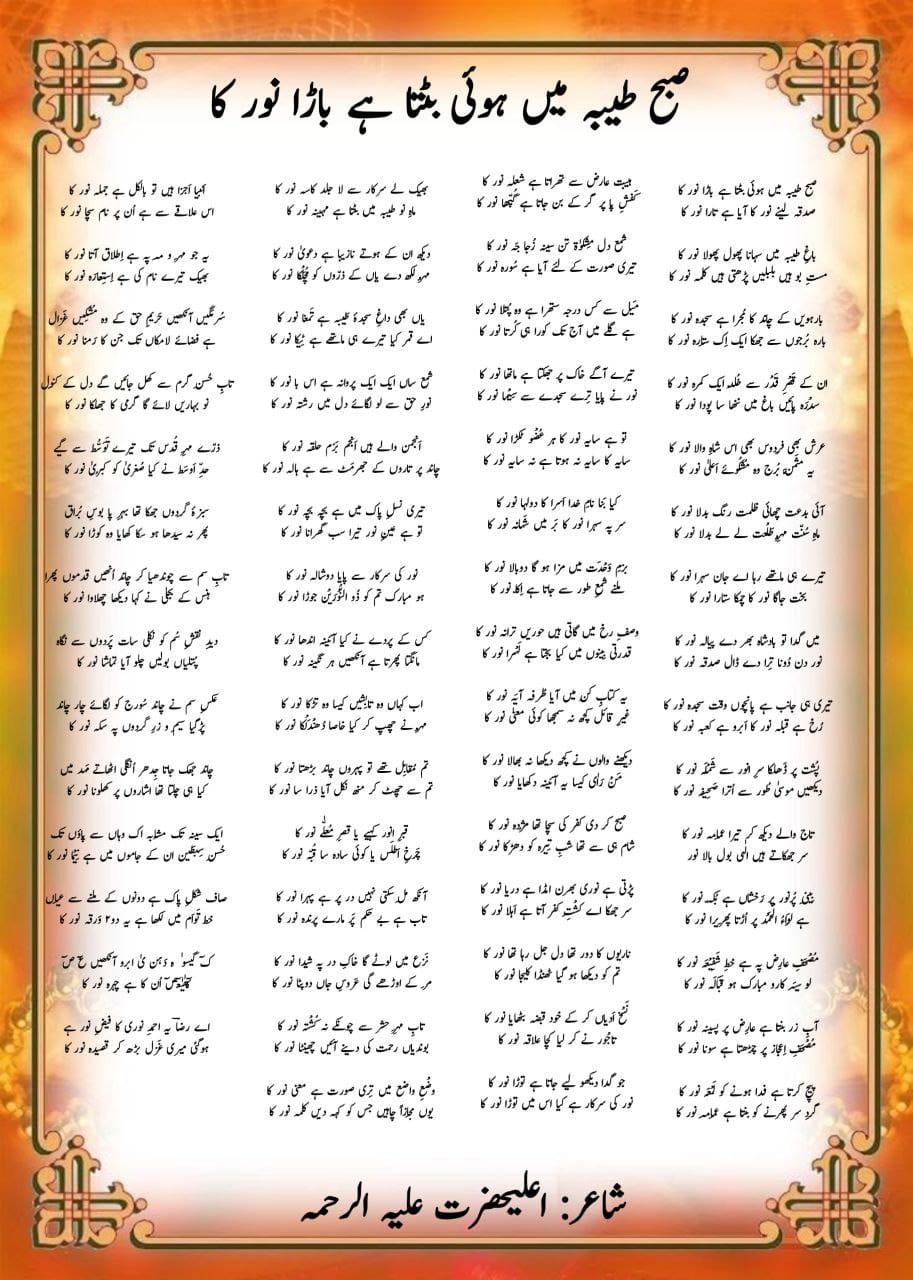 صبح طیبہ میں ہوئی بٹتا ہے باڑا نور کا
صبح طیبہ میں ہوئی بٹتا ہے باڑا نور کا
صدقہ لینے نور کا آیا ہے تارا نور کا
باغِ طیبہ میں سہانا پھول پھولا نور کا
مستِ بو ہیں بلبلیں پڑھتی ہیں کلمہ نور کا
بارہویں کے چاند کا مُجرا ہے سجدہ نور کا
بارہ بُرجوں سے جھکا ایک اِک ستارہ نور کا
ان کے قَصْرِ قَدْر سے خُلد ایک کمرہ نور کا
سدرَہ پائیں باغ میں ننھا سا پودا نور کا
عرش بھی فردوس بھی اس شاہِ والا نور کا
یہ مُثَمَّن بُرج وہ مشکوئے اَعلیٰ نور کا
آئی بدعت چھائی ظلمت رنگ بدلا نور کا
ماہِ سُنّت مہرِ طَلْعت لے لے بدلا نور کا
تیرے ہی ماتھے رہا اے جان سہرا نور کا
بخت جاگا نور کا چمکا ستارا نور کا
میں گدا تو بادشاہ بھر دے پیالہ نور کا
نور دن دُونا تِرا دے ڈال صدقہ نور کا
تیری ہی جانب ہے پانچوں وقت سجدہ نور کا
رُخ ہے قبلہ نور کا اَبرو ہے کعبہ نور کا
پُشت پر ڈھلکا سرِ انور سے شَمْلَہ نور کا
دیکھیں موسیٰ طُور سے اُترا صَحِیفہ نور کا
تاج والے دیکھ کر تیرا عمامہ نور کا
سر جھکاتے ہیں الٰہی بول بالا نور کا
بینیِ پُرنور پر رَخشاں ہے بُکّہ نور کا
ہے لِوَاءُ الْحَمْد پر اُڑتا پھریرا نور کا
مُصْحَفِ عارِض پہ ہے خطِ شَفِیْعَہ نور کا
لو سیَہ کارو مبارک ہو قَبَالَہ نور کا
آبِ زر بنتا ہے عارِض پر پسینہ نور کا
مُصْحَفِ اِعجاز پر چڑھتا ہے سونا نور کا
پیچ کرتا ہے فدا ہونے کو لَمْعَہ نور کا
گردِ سر پھرنے کو بنتا ہے عمامہ نور کا
ہیبتِ عارِض سے تھراتا ہے شعلہ نور کا
کَفشِ پا پر گر کے بن جاتا ہے گُپّھا نور کا
شمع دل مِشکوٰۃ تن سینہ زُجاجَہ نور کا
تیری صورت کے لئے آیا ہے سُورہ نور کا
مَیل سے کس درجہ ستھرا ہے وہ پتلا نور کا
ہے گلے میں آج تک کورا ہی کُرتا نور کا
تیرے آگے خاک پر جھکتا ہے ماتھا نور کا
نور نے پایا تِرے سجدے سے سِیْمَا نور کا
تو ہے سایہ نور کا ہر عُضْو ٹکڑا نور کا
سایہ کا سایہ نہ ہوتا ہے نہ سایہ نور کا
کیا بَنا نامِ خدا اَسرا کا دولہا نور کا
سر پہ سہرا نور کا بَر میں شَہانہ نور کا
بزمِ وَحْدَت میں مزا ہو گا دوبالا نور کا
ملنے شمعِ طور سے جاتا ہے اِکّا نور کا
وصفِ رخ میں گاتی ہیں حوریں ترانہ نور کا
قدرتی بینوں میں کیا بجتا ہے لَہرا نور کا
یہ کتابِ کُن میں آیا طُرفہ آیَہ نور کا
غیر قائل کچھ نہ سمجھا کوئی معنیٰ نور کا
دیکھنے والوں نے کچھ دیکھا نہ بھالا نور کا
مَنْ رَاٰی کیسا یہ آئینہ دکھایا نور کا
صبح کر دی کفر کی سچا تھا مژدہ نور کا
شام ہی سے تھا شبِ تِیرہ کو دھڑکا نور کا
پڑتی ہے نوری بھرن امڈا ہے دریا نور کا
سر جھکا اے کِشْتِ کفر آتا ہے اَہلا نور کا
ناریوں کا دور تھا دل جل رہا تھا نور کا
تم کو دیکھا ہو گیا ٹھنڈا کلیجا نور کا
نَسْخِ اَدیاں کر کے خود قبضہ بٹھایا نور کا
تاجْوَر نے کر لیا کچا علاقہ نور کا
جو گدا دیکھو لیے جاتا ہے توڑا نور کا
نور کی سرکار ہے کیا اس میں توڑا نور کا
بھیک لے سرکار سے لا جلد کاسہ نور کا
ماہِ نو طیبہ میں بٹتا ہے مہینہ نور کا
دیکھ ان کے ہوتے نازیبا ہے دعویٰ نور کا
مہر لکھ دے یاں کے ذرّوں کو مُچلکا نور کا
یاں بھی داغِ سجدۂ طیبہ ہے تمغا نور کا
اے قمر کیا تیرے ہی ماتھے ہے ٹیکا نور کا
شمع ساں ایک ایک پروانہ ہے اس با نور کا
نورِ حق سے لو لگائے دل میں رشتہ نور کا
اَنجمن والے ہیں اَنْجُم بَزْم حلقہ نور کا
چاند پر تاروں کے جھرمٹ سے ہے ہالہ نور کا
تیری نسلِ پاک میں ہے بچّہ بچّہ نور کا
تو ہے عینِ نور تیرا سب گھرانا نور کا
نور کی سرکار سے پایا دوشالہ نور کا
ہو مبارک تم کو ذُو النُّوْرَیْن جوڑا نور کا
کس کے پردے نے کیا آئینہ اندھا نور کا
مانگتا پھرتا ہے آنکھیں ہر نگینہ نور کا
اب کہاں وہ تابِشیں کیسا وہ تڑکا نور کا
مہر نے چھپ کر کیا خاصا دُھندلکا نور کا
تم مُقابِل تھے تو پہروں چاند بڑھتا نور کا
تم سے چھٹ کر منھ نکل آیا ذرا سا نور کا
قبرِ انور کہیے یا قصرِ مُعلّٰے نور کا
چَرخِ اَطلَس یا کوئی سادہ سا قُبّہ نور کا
آنکھ مل سکتی نہیں در پر ہے پہرا نور کا
تاب ہے بے حکم پَر مارے پرندہ نور کا
نَزْع میں لوٹے گا خاکِ در پہ شیدا نور کا
مر کے اوڑھے گی عروسِ جاں دوپٹا نور کا
تابِ مہرِ حشر سے چونکے نہ کُشْتَہ نور کا
بوندیاں رحمت کی دینے آئیں چھینٹا نور کا
وضعِ واضع میں تِری صورت ہے معنی نور کا
یوں مجازاً چاہیں جس کو کہہ دیں کلمہ نور کا
اَنبِیا اَجزا ہیں تو بالکل ہے جملہ نور کا
اس علاقے سے ہے اُن پر نام سچا نور کا
یہ جو مہر و مہ پہ ہے اِطلاق آتا نور کا
بھیک تیرے نام کی ہے اِستِعارَہ نور کا
سُرمگیں آنکھیں حَریمِ حق کے وہ مُشکیں غَزال
ہے فضائے لامکاں تک جن کا رَمنا نور کا
تابِ حُسنِ گرم سے کھل جائیں گے دل کے کنول
نو بہاریں لائے گا گرمی کا جھلکا نور کا
ذرّے مہرِ قُدس تک تیرے تَوَسُّط سے گیے
حدِّ اَوسَط نے کیا صُغریٰ کو کبریٰ نور کا
سبزۂ گردوں جھکا تھا بہرِ پا بوسِ بُراق
پھر نہ سیدھا ہو سکا کھایا وہ کوڑا نور کا
تابِ سم سے چوندھیا کر چاند اُنھیں قدموں پھرا
ہنس کے بجلی نے کہا دیکھا چھلاوا نور کا
دیدِ نقشِ سُم کو نکلی سات پَردوں سے نگاہ
پُتلیاں بولیں چلو آیا تماشا نور کا
عکسِ سم نے چاند سُورج کو لگائے چار چاند
پڑ گیا سیم و زرِ گردوں پہ سکہ نور کا
چاند جھک جاتا جِدھر اُنگلی اٹھاتے مَہد میں
کیا ہی چلتا تھا اشاروں پر کھلونا نور کا
ایک سینہ تک مشابہ اک وہاں سے پاؤں تک
حُسنِ سِبطَین ان کے جاموں میں ہے نِیْما نور کا
صاف شکلِ پاک ہے دونوں کے ملنے سے عیاں
خطِ تواَم میں لکھا ہے یہ دو۲ وَرقہ نور کا
کٓ گیسو ہٰ دَہن یٰ ابرو آنکھیں عٓ صٓ
کٓھٰیٰعٓصٓ اُن کا ہے چہرہ نور کا
اے رضاؔ یہ احمدِ نوری کا فیضِ نور ہے
ہوگئی میری غَزَل بڑھ کر قصیدہ نور کا
شاعر: اعلیٰحضرت علیہ الرحمہ